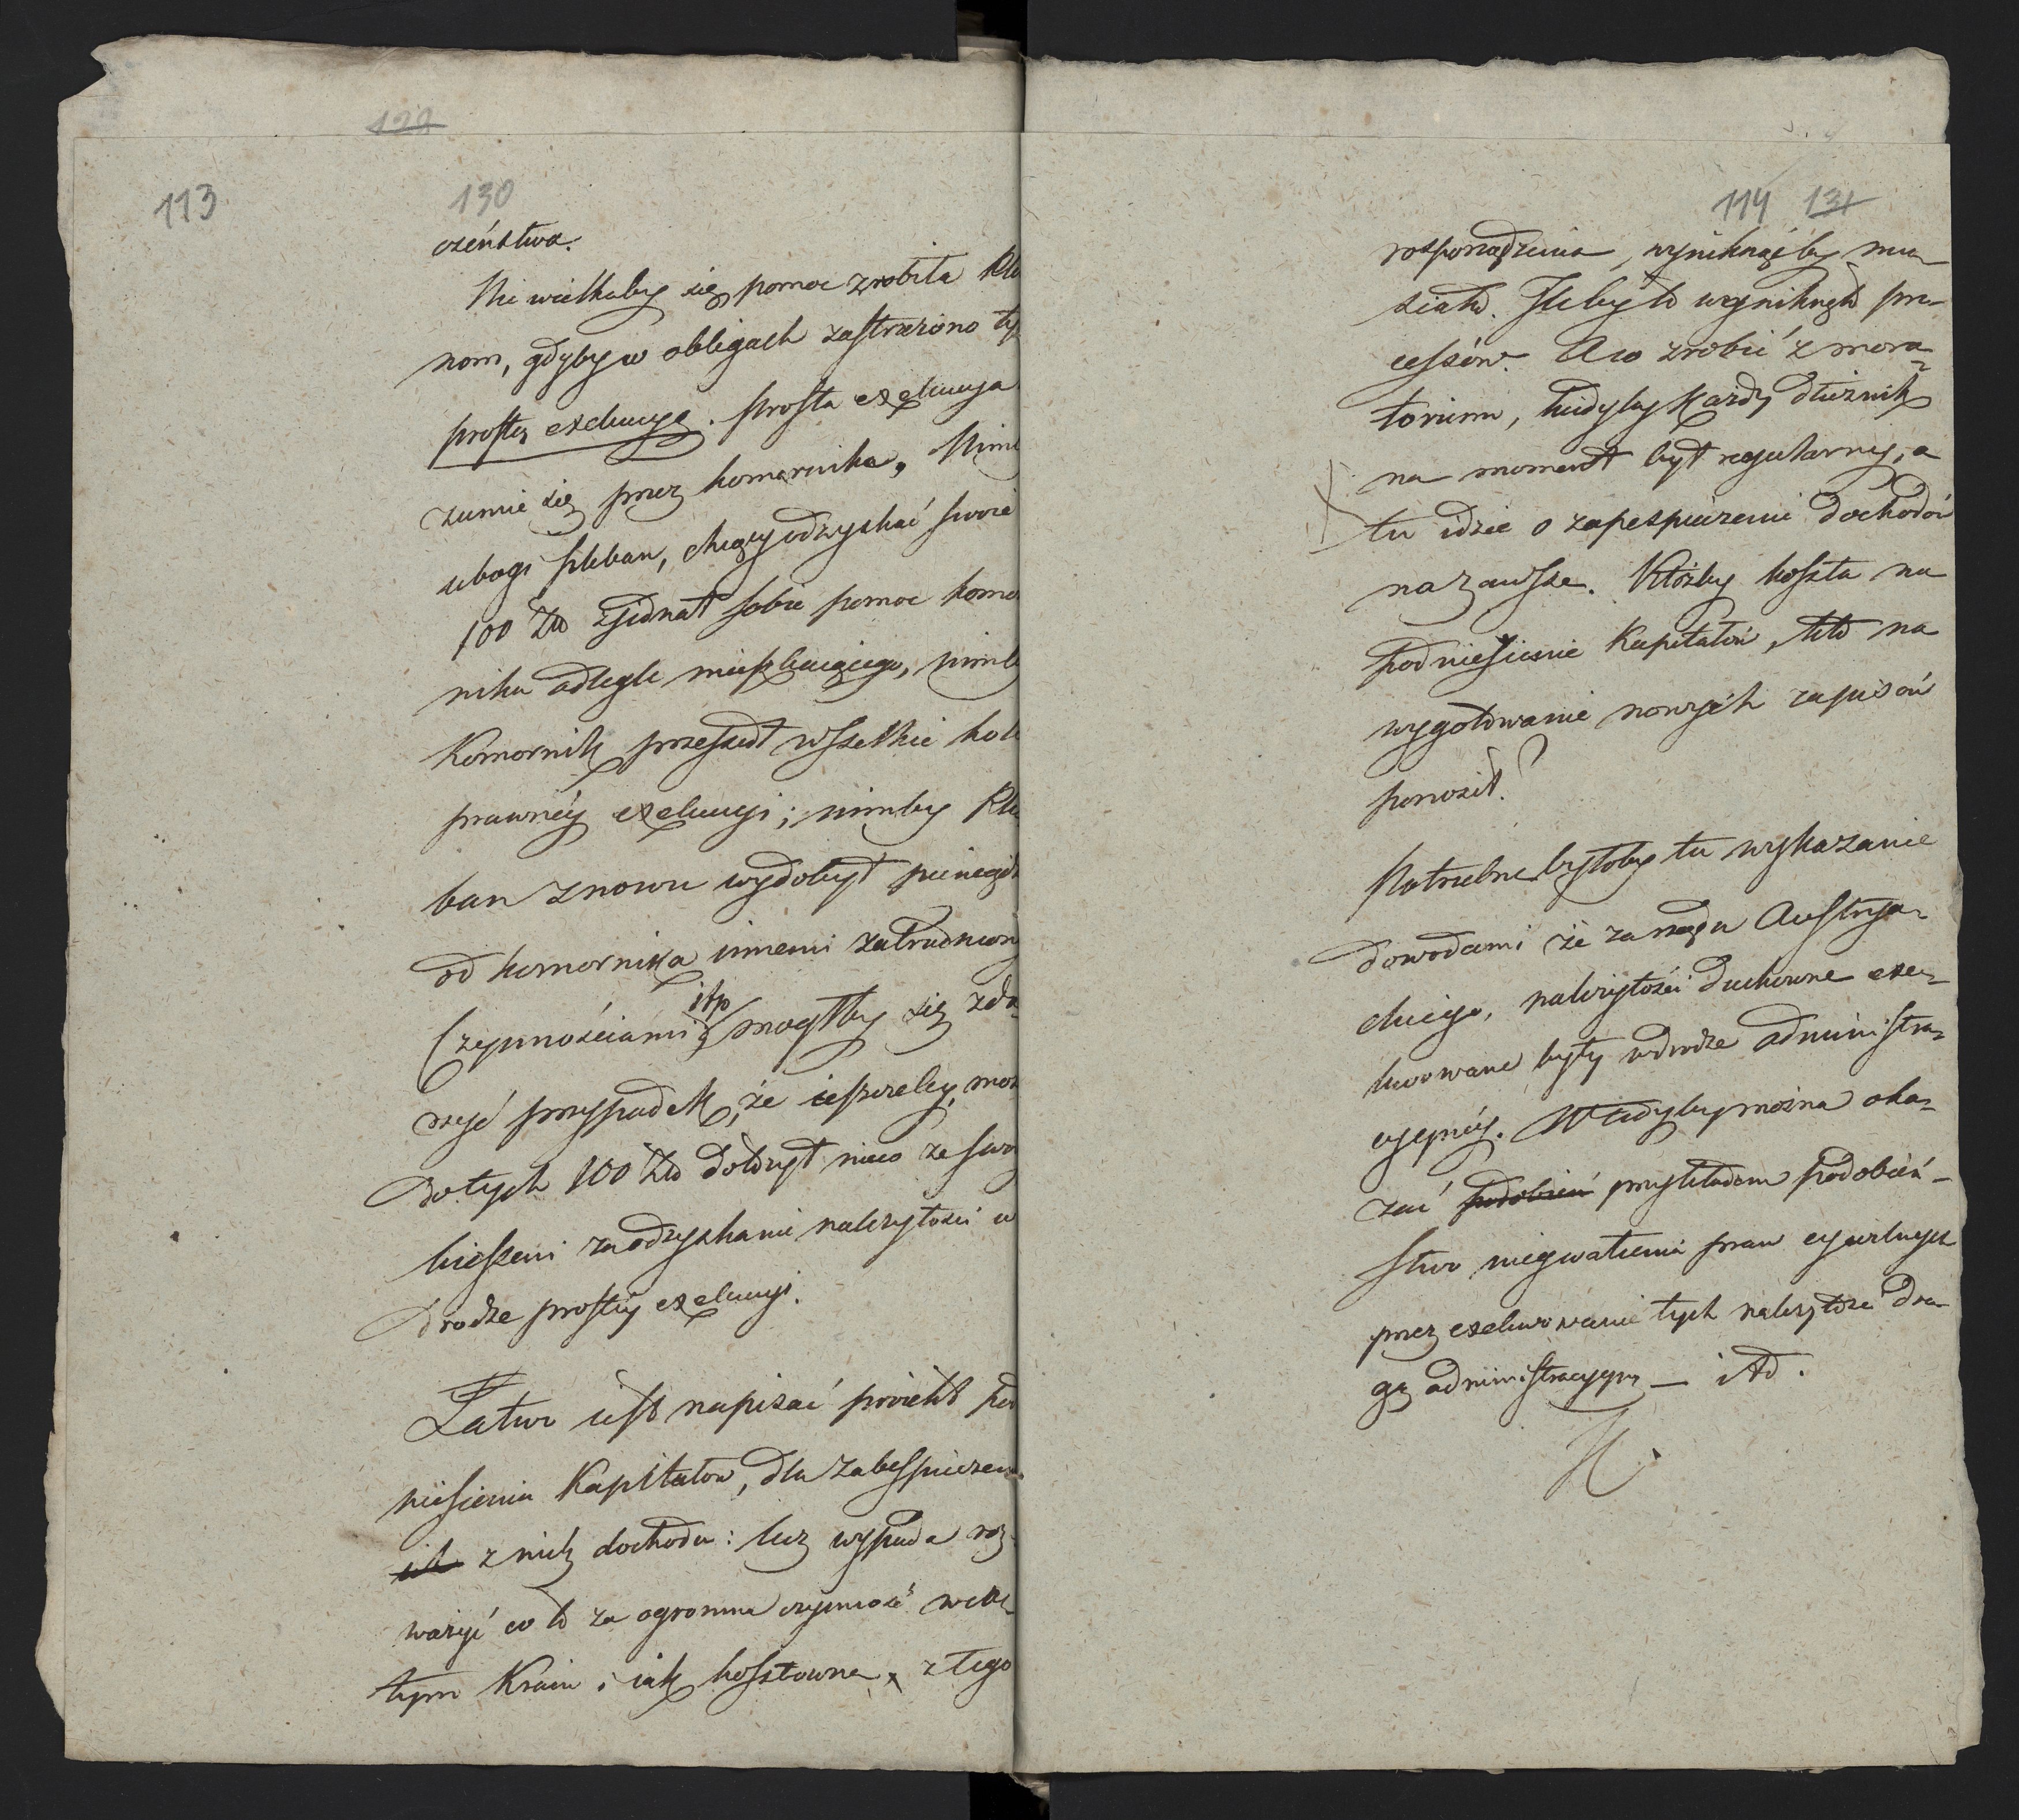 129
113
130
czeństwa.
Nie wielkaby się pomoc zrobiła Ple
nom, gdyby w obligach zastrzeżono ty
prostą exekucyę. Prosta exekucya
zumie się przez komornika. Nim
ubogi Pleban, chcący odzyskać swoie
100 Zło zjednał sobie pomoc komo
nika odlegle mieszkaiącego, nimb
Komornik przeszedł wszelkie kol
prawnéy exekucyi; nimby Ple
ban znowu wydobył pieniądz
od komornika innemi zatrudnion
czynnościami itp mogłby się zda
rzyć przypadek, że ieszczeby, mo
do tych 100 Zło dołożył nieco ze swo
kieszeni za odzyskanie należytości w
drodze prostéy exekucyi.
Łatwo iest napisać proiekt pod
niesienia Kapitałów, dla zabespieczen
ich z nich dochodu: lecz wypada roz
ważyć co to za ogromna czynność w ca
tym Kraiu, i iak kosztowna, z tego
114 131
rosporządzenia, wyniknąćby mu
siało. Ileby to wyniknęło pro
cessów. A co zrobić z mora
torium, kiedyby każdy dłużnik
na moment był regularny, a
tu idzie o zapespieczenie dochodów
na zawsze. Któżby koszta na
podniesienie Kapitałów, kto na
wygotowanie nowych zapisów
ponosił?
Potrzebne byłoby tu wykazanie
dowodami że za rządu Austrya
ckiego, należytości duchowne exe
kwowane były w drodze administra
cyynéy. Wtedyby można oka
zać podobień przykładem podobień
stwo niegwałcenia praw cywilnych
przez exekwowanie tych należytości dro
gą administracyyną — itd.